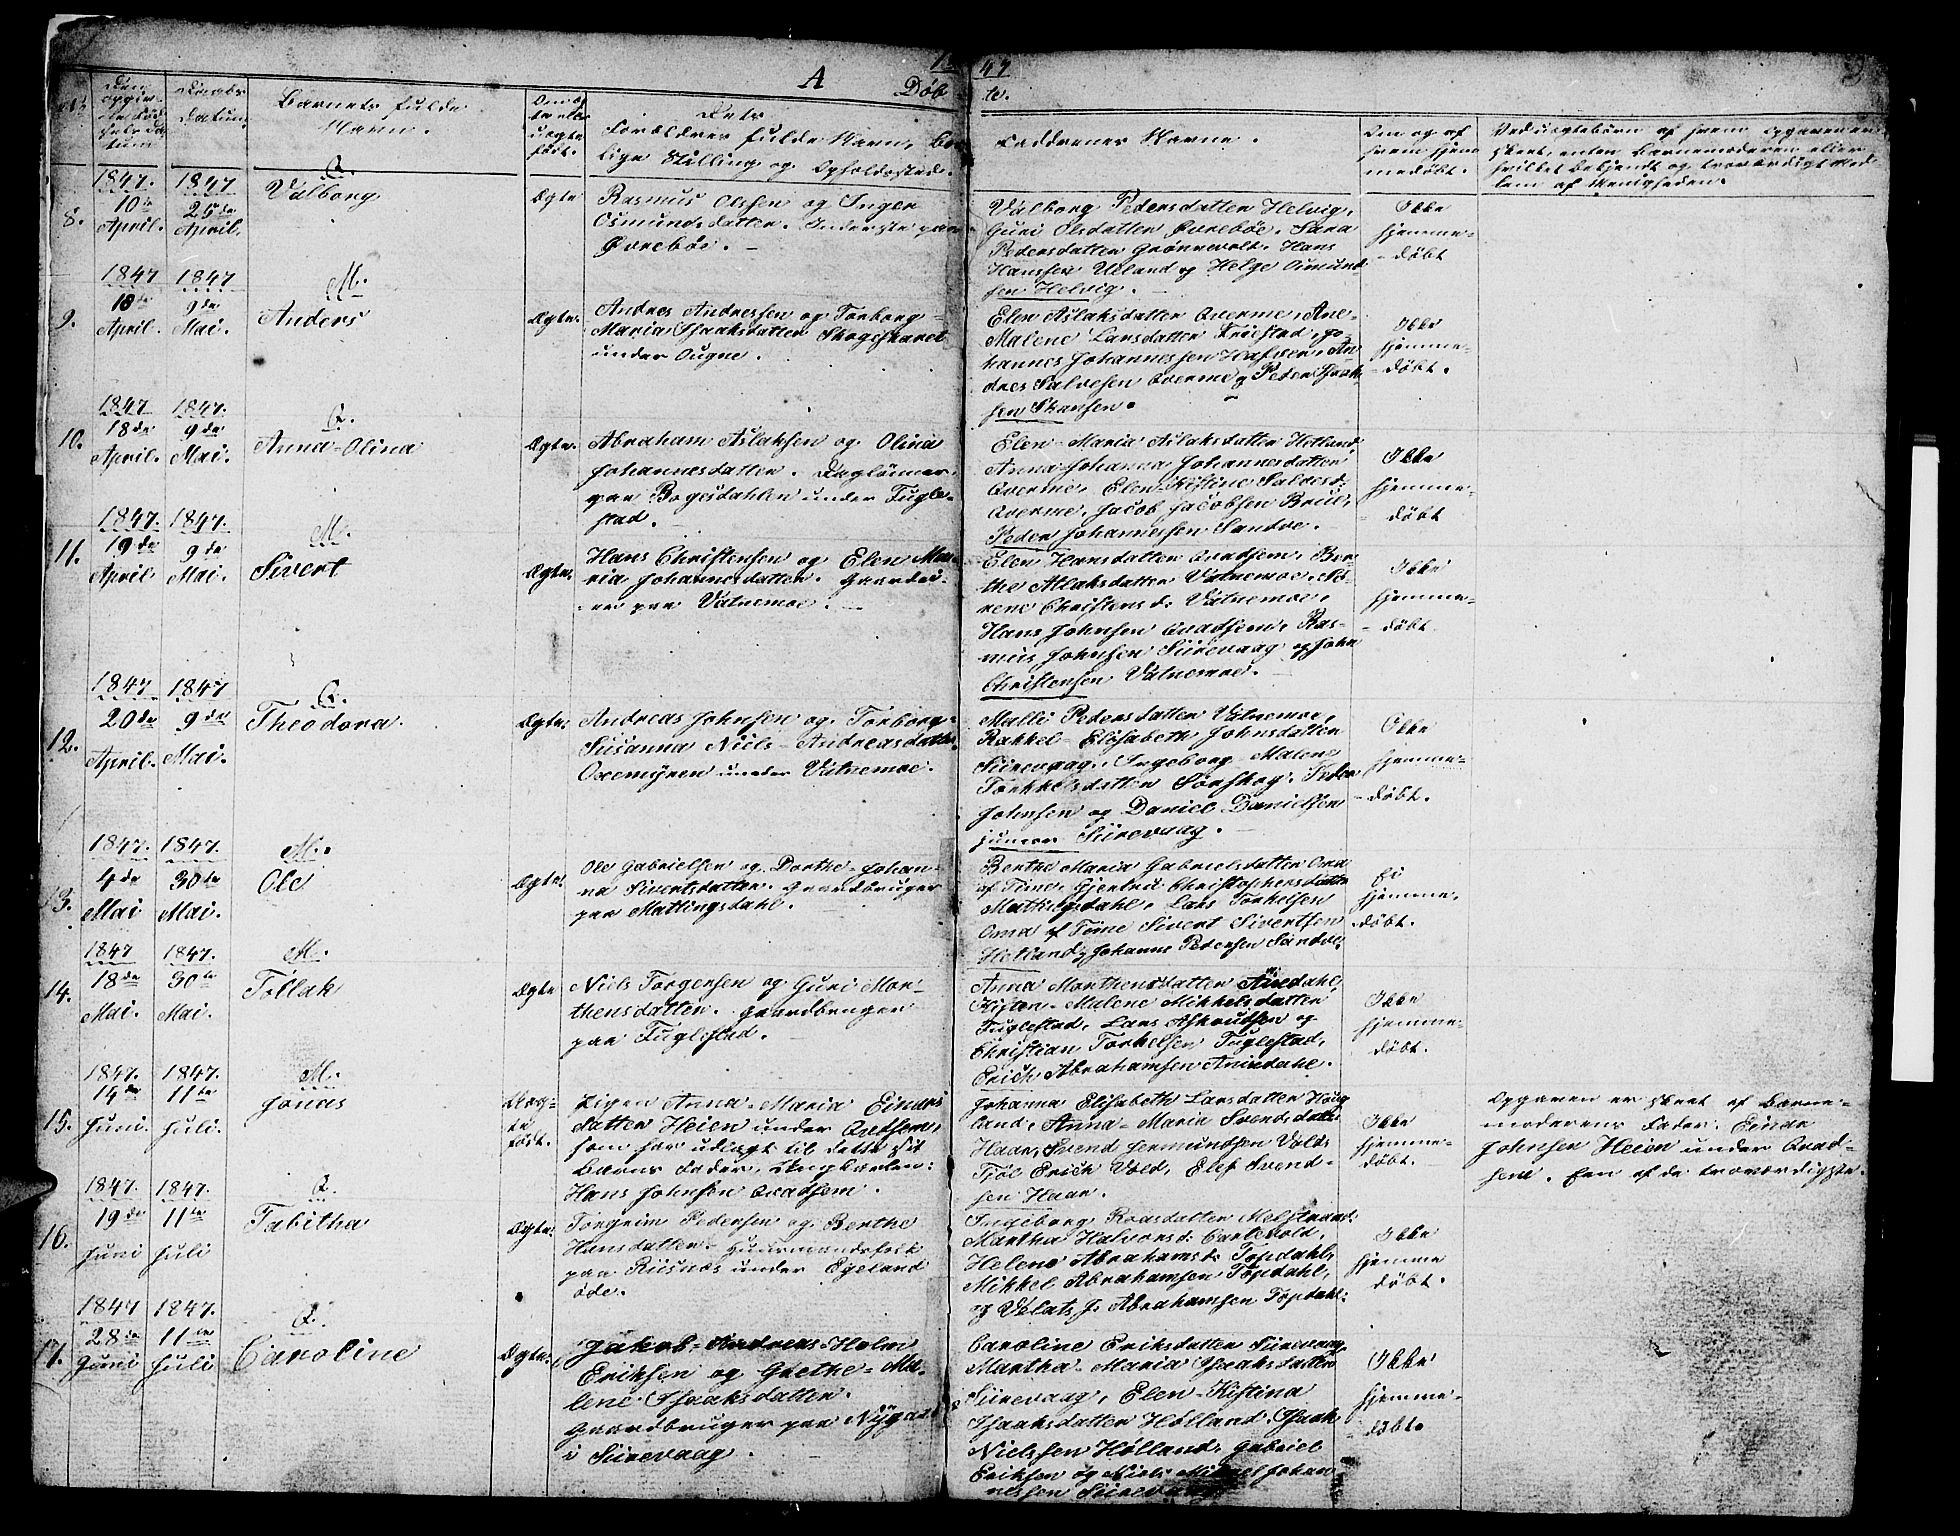 A
1847
Døbte.
Barnets fulde
Navn.
Forældres fulde Navn, Bor-
lige Stilling og Opholdssted.
Faddrenes Navne.
8.
1847.
10de
April.
1847
25de
April.
Q.
Valborg
Ægte
Rasmus Olssen og Inger
Osmundsdatter. Inderste paa
Ørrebøe.
Valborg Pedersdatter Helvig,
Guri Olsdatter Ørrebøe. Sara
Pedersdatter Grønnevolt. Hans
Hanssen Ueland og Helge Osmund-
sen Helvig.
Ikke
hjemme-
døbt
9.
1847
18de
April.
1847
9de
Mai.
M.
Anders
Ægte.
Andres Andressen og Torborg-
Maria Isaaksdatter Skogiskaret
under Ougne.
Elen Aslaksdatter Qverme, Ane-
Malene Larsdatter
hannes Johannessen
dres Salvesen Qverme og Peder Isaak-
sen Skansen.
Ikke
hjemme-
døbt.
10.
1847
18de
April.
1847.
9de
Mai.
Q.
Anna-Olina
Ægte.
Abraham Aslaksen og Olina
Johannesdatter. Dagleiner
paa Bogesdahlen under Fugle-
stad.
Elen-Maria Aslaksdatter Hetland,
Anna-Johanna Johannesdatter
Qverme, Elen-Kistine
Qverme, Jacob Jacobsen
Peder Johannessen Sandve.
Ikke
hjemme-
døbt
11.
1847.
19de
April.
1847.
9de
Mai.
M.
Sivert
Ægte.
Hans Christensen og Elen Ma-
ria Johannesdatter. Gaardei-
er paa Vatnemoe.
Elen Hansdatter Qvadsem. Ber-
the Atlaksdatter Vatnemoe,
Christensd: Vatnemoe.
Hans Johnsen Qvadsem, Ras-
mus Johnsen Siirevaag og John
Christensen Vatnemoe.
Ikke
hjemme-
døbt.
12.
1847
20de
April.
1847
9de
Mai.
Q.
Theodora.
Ægte.
Andreas Johnsen og Torborg-
Susanna Niels-Andreasdatter
Oxemyren under Vatnemoe.
Malli Pedersdatter Vatnemoe,
Rakkel-Elisabeth Johnsdatter
Siirevaag, Ingeborg-Malene
Torkkelsdatter Sørskog, Peder
Johnsen og Daniel Danielssen
junior Siirevaag.
Ikke
hjemme-
døbt.
13.
1847.
4de
Mai
1847.
30te
Mai.
M.
Ole
Ægte.
Ole Gabrielsen og Dorthe-Johan-
na Sivertsdatter. Gaardbruger
paa Mattingsdahl.
Berthe Maria Gabrielsdatter Oma
af Time, Gjertrud Christophersdatter
Mattingsdahl, Lars Torkelsen
Oma af Time Sivert Sivertsen
Hetland, Johanne Pedersen Sandve.
Ei
hjemme-
døbt.
14.
1847
18de
Mai.
1847.
30te
Mai.
M.
Tollak
Ægte
Niels Torgersen og Guri Mor-
thensdatter. Gaardbruger
paa Fuglestad.
Anna Morthensdatter
Kisten-Malene Mikkelsdatter
Fuglestad, Lars Asbrudsen og
Christian Torkelsen Fuglestad,
Erich Abrahamsen Aniedahl.
Ikke
hjemme-
døbt.
15.
1847.
14de
Juni.
1847.
11te
Juli.
M.
Jonas
Uæg-
te
født.
Pigen Anna-Maria Einars
datter Heien under Qvadsem,
som har udlagt til dette sit
Barns Fader, Ungkarlen:
Hans Johnsen Qvadsem.
Johanna Elisabeth Larsdatter Høig
land, Anna-Maria Svendsdatter
Haar, Svend Jermundsen
Erich Vold, Elef Svend-
sen Haar.
Ikke
hjemme-
døbt.
Opgaven er skeet af Barne-
moderens Fader. Einar
Johnsen Heien under Qvad-
sem. Een af de troværdigste.
16.
1847.
19de
Juni
1847.
11te
Juli
Q.
Tabitha
Ægte.
Torgrim Pedersen og Berthe
Hansdatter. Huusmandsfolk
paa Riisnæs under Egeland
øde.
Ingeborg Roasdatter Melstrand.
Martha Halvorsd:
Helene Abrahamsd: Topdahl,
Mikkel Abrahamsen Topdahl,
og Abrahamsen Topdahl.
Ikke
hjemme
døbt.
17.
1847
28de
Juni
1847.
11te
Juli
Q.
Caroline
Ægte.
Jakob-Andreas-Holm
Eriksen og Grethe-Ma-
lene Isaaksdatter.
Gaardbruger paa Nygaard
i Siirevaag.
Caroline Eriksdatter Siirevaag,
Martha-Maria Isaaksdatter
Siirevaag, Elen-Kistina
Isaaksdatter Hølland, Isaak
Nielssen Hølland, Gabriel
Eriksen og Niels Mikael Johan
nessen Siirevaag.
Ikke
hjemme-
døbt.